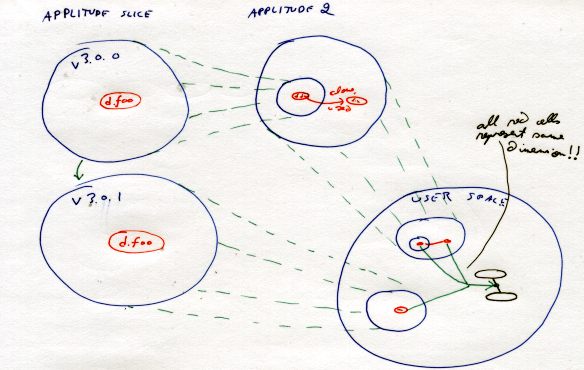 APPLITUDE SLICE
APPLITUDE 2
v3.0.0
d.foo
clone
used
all red cells
represent same
dimension!!
v3.0.1
d.foo
USER SPACE